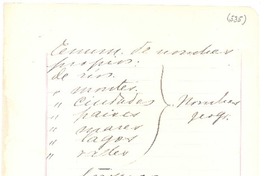 (535)
de nombres
propios.
De rios.
" montes
" ciudades
" paises
" mares
" lagos
Nombres
geog.